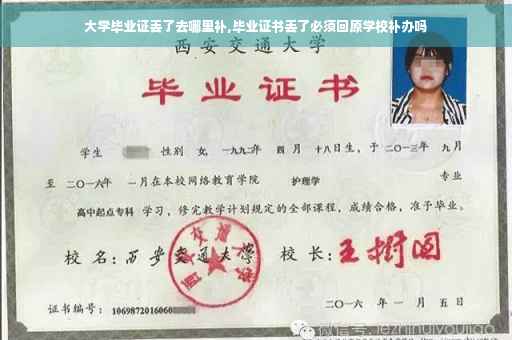 大学毕业证丢了去哪里补,毕业证书丢了必须回原学校补办吗
西安交通大学
毕业证书
学生 性别 女, 一九九二年 四 月 十八日生, 于 二〇一三年 九月
至 二〇一六年 一月在本校网络教育学院 护理学 专业
高中起点专科 学习, 修完教学计划规定的全部课程, 成绩合格, 准予毕业。
校 名: 西安交通大学 校 长: 王树国
西安交通大学
证书编号: 1069872016060
二〇一六 年 一 月 五 日
微信号: jiezhinuiyoujiao